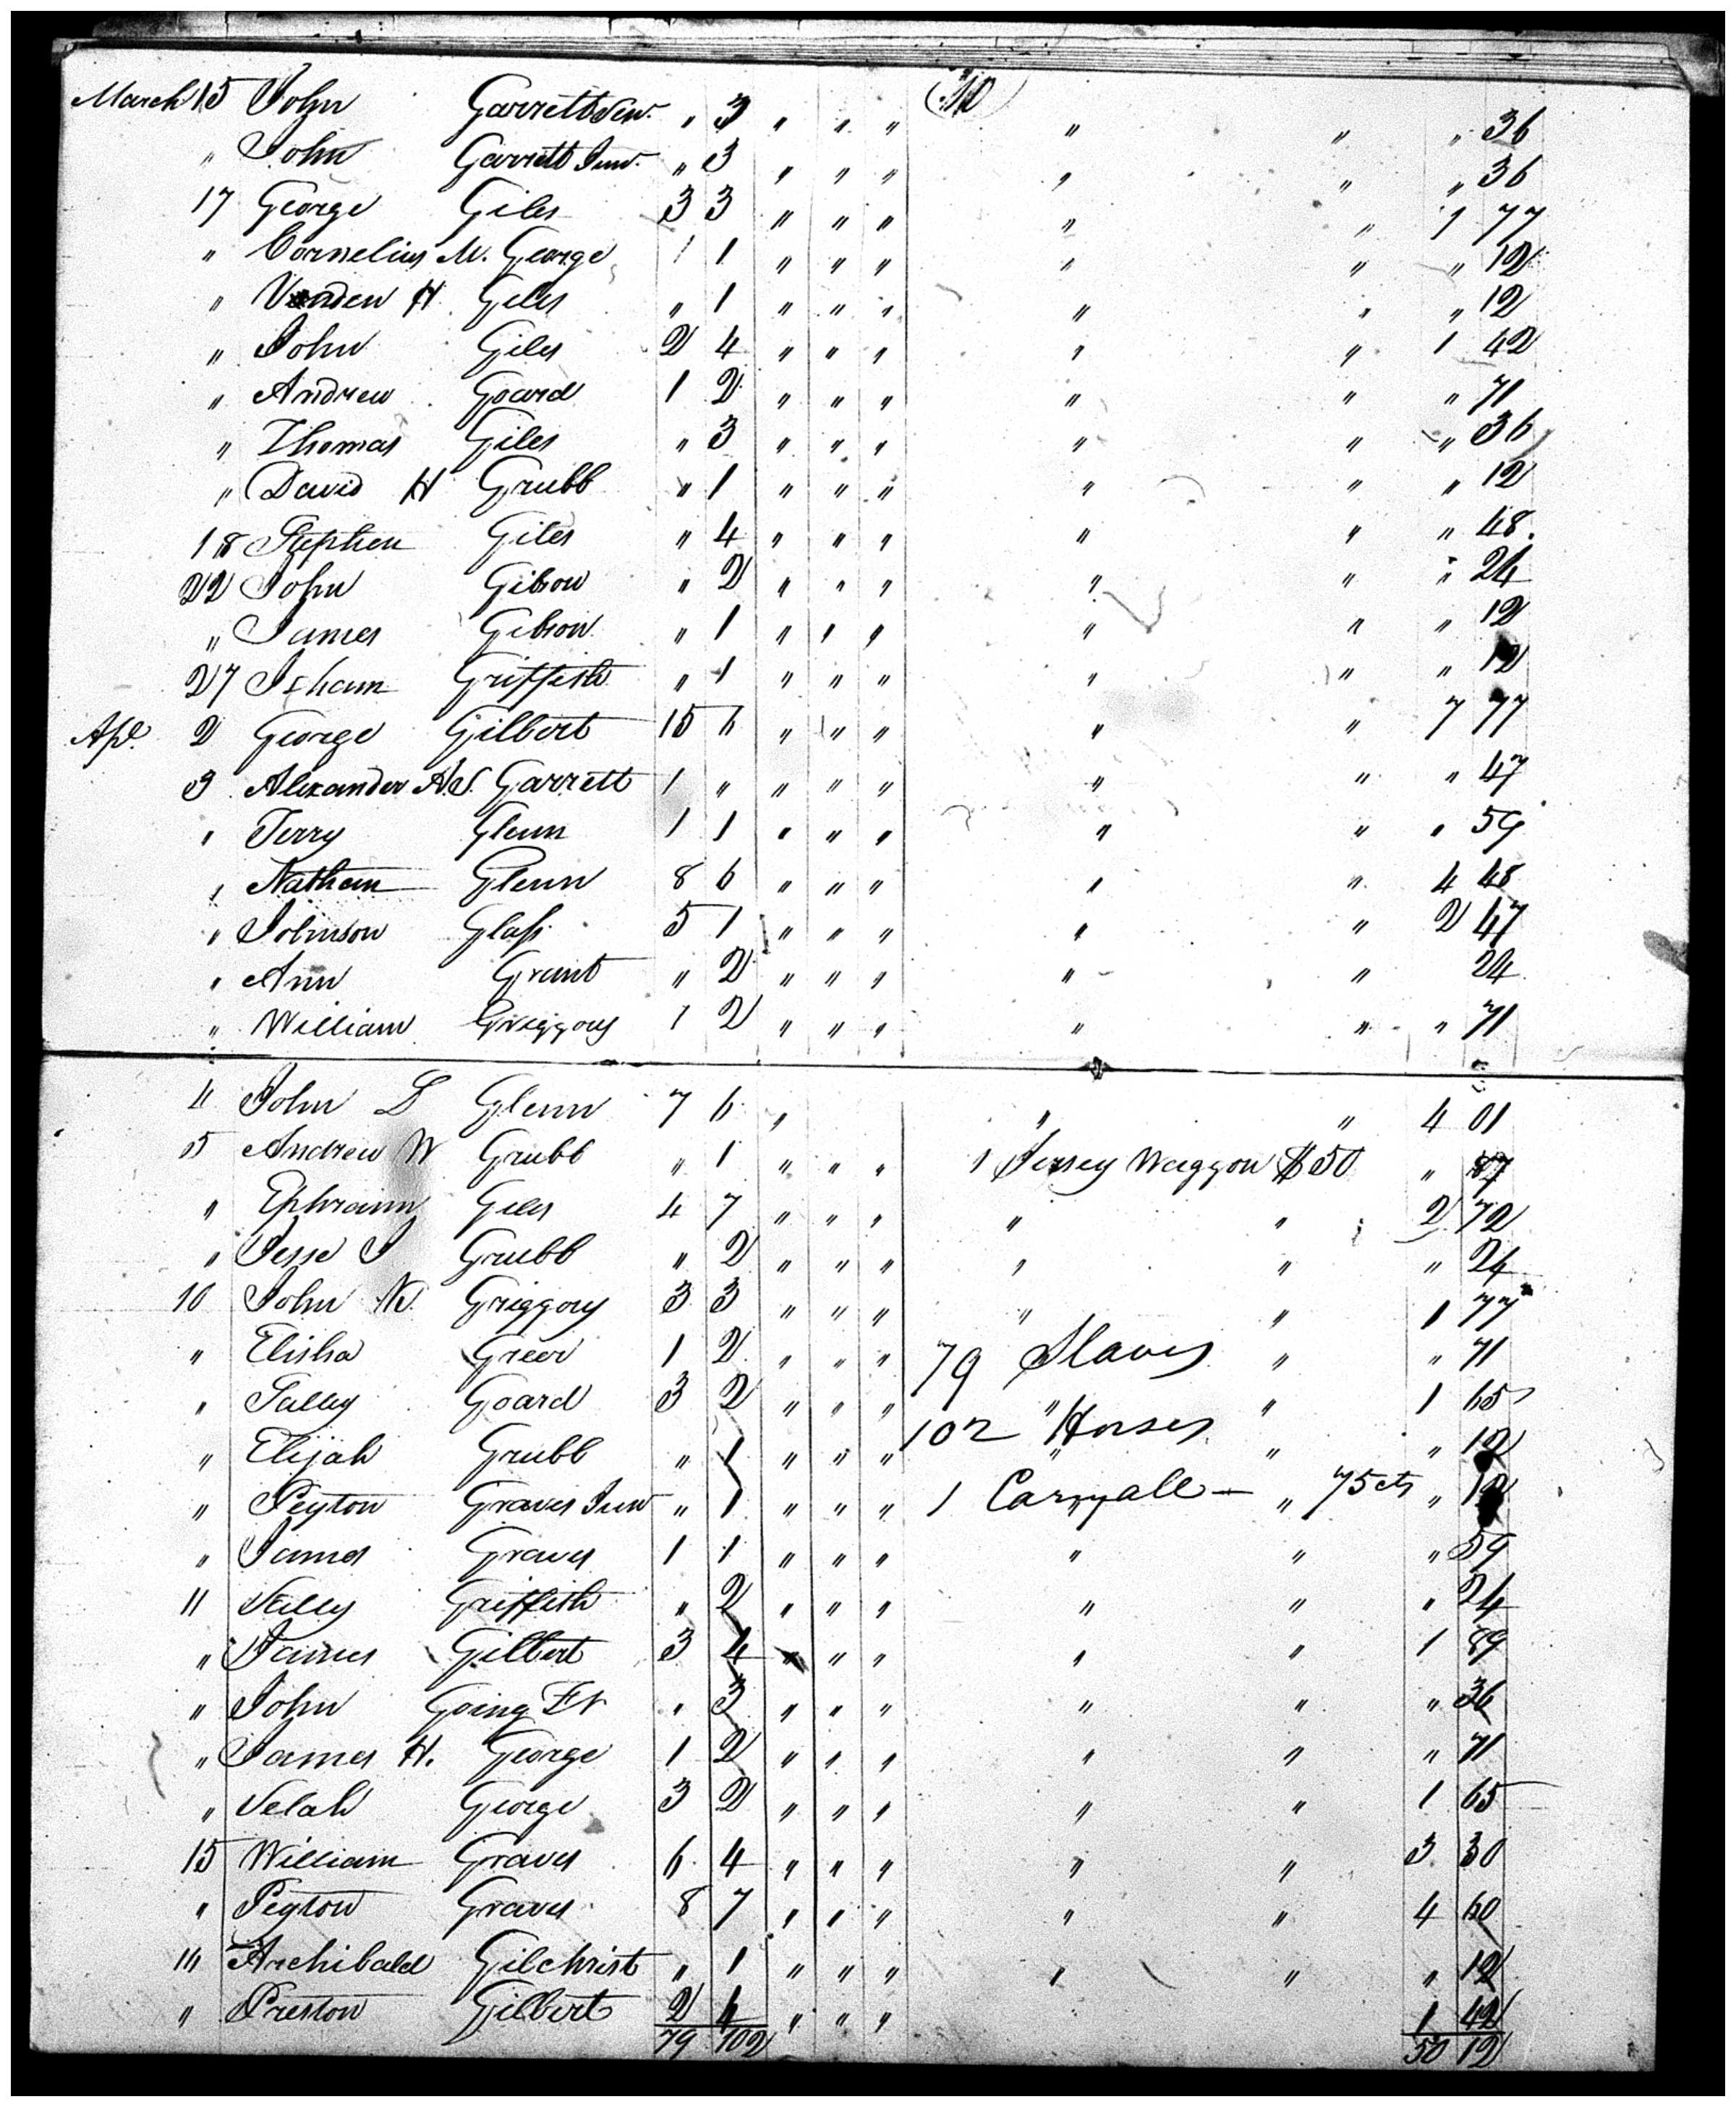 March 15 John Garrett Sen. " 3 " " " " " " 36
" John Garrett Jun. " 3 " " " " " " 36
17 George Giles 3 3 " " " " " 1 77
" Cornelius M. George 1 1 " " " " " " 12
" H. Giles " 1 " " " " " " 12
" John Giles 2 4 " " " " " 1 42
" Andrew Goard 1 2 " " " " " " 71
" Thomas Giles " 3 " " " " " " 36
" David H Grubb " 1 " " " " " " 12
18 Stephen Giles " 4 " " " " " " 48.
22 John Gibson " 2 " " " " " " 24
" James Gibson " 1 " " " " " " 12
27 Isham Griffith " 1 " " " " " " 12
Apl. 2 George Gilbert 15 6 " " " " " 7 77
3 Alexander H.S. Garrett 1 " " " " " " " 47
" Terry Glenn 1 1 " " " " " " 59
" Nathan Glenn 8 6 " " " " " 4 48
" Johnson Glass 5 1 " " " " " 2 47
" Ann Grant " 2 " " " " " 24
" William Griggory 1 2 " " " " " " 71
4 John D Glenn 7 6 " " " 4 01
5 Andrew W Grubb " 1 " " " 1 Jersey Waggon $50 " 87
" Ephraim Giles 4 7 " " " " " 2 72
" Jesse J Grubb " 2 " " " " " " 24
10 John W. Griggory 3 3 " " " " " 1 77
" Elisha Greer 1 2 " " " 79 Slaves " " 71
" Talley Goard 3 2 " " " " " 1 65
" Elijah Grubb " 1 " " " 102 Horses " " 12
" Peyton Graves Jun " 1 " " " 1 Carryall — " 75 cts " 12
" James Graves 1 1 " " " " " " 59
11 Sally Griffith " 2 " " " " " " 24
" James Gilbert 3 4 " " " " " 1 89
" John Going " 3 " " " " " " 36
" James H. George 1 2 " " " " " " 71
" Selah George 3 2 " " " " " 1 65
15 William Graves 6 4 " " " " " 3 30
" Peyton Graves 8 7 " " " " " 4 60
16 Archibald Gilchrist " 1 " " " " " " 12
" Preston Gilbert 2 4 " " " 1 42
79 102 50 12